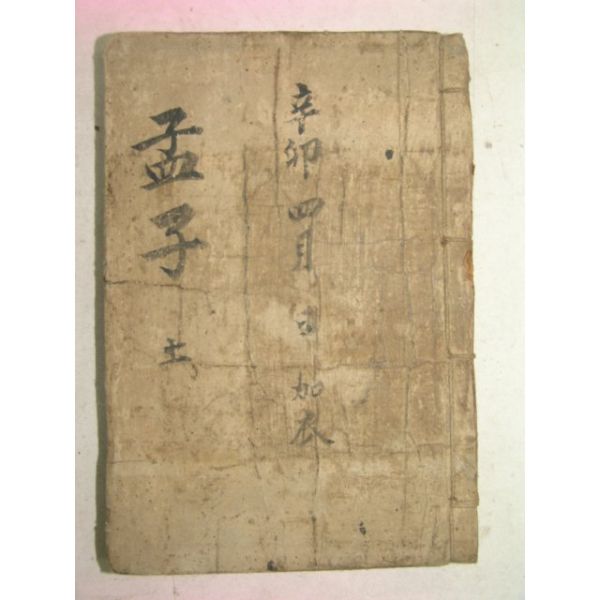 辛卯四月 日 加衣
孟子